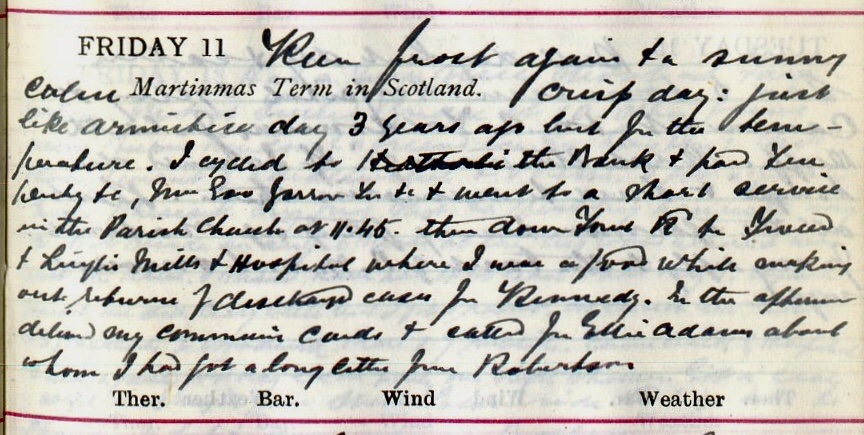 FRIDAY 11 Keen frost again & a sunny
calm Martinmas Term in Scotland. crisp day: just
like armistice day 3 years ago but for the tem-
perature. I cycled to the Bank & paid
&c, & went to a short service
in the Parish Church at 11.45. then down to Tweed
& Mills & Hospital where I was a good while making
out returns of discharged cases for Kennedy. In the afternoon
delivered my communion cards & called for Ellie Adams about
whom I had got a long letter from Robertson
Ther. Bar. Wind Weather